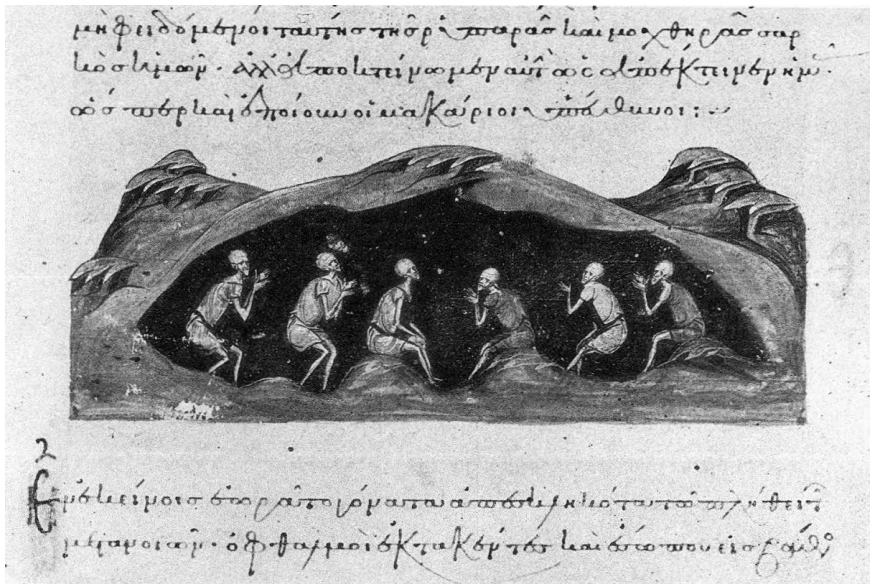 μὴ φειδόμενοι ταύτης τῆς ῥυπαρᾶς καὶ μοχθηρᾶς σαρ
κὸς ἡμῶν· ἀλλ' ἀποκτείνωμεν αὐτ ὡς ἀπέκτεινεν ἡμ·
ὥσπερ καὶ ἐποίουν οἱ μακάριοι ὑπεύθυνοι:
Ἐν ἐκείνοις ἑωρᾶτο γόνατα ἀπεσκληκότα τῷ πλήθει τ
μετανοιῶν· ὀφθαλμοὶ ἐκτακέντες καὶ ἔσω που εἰς βάθο